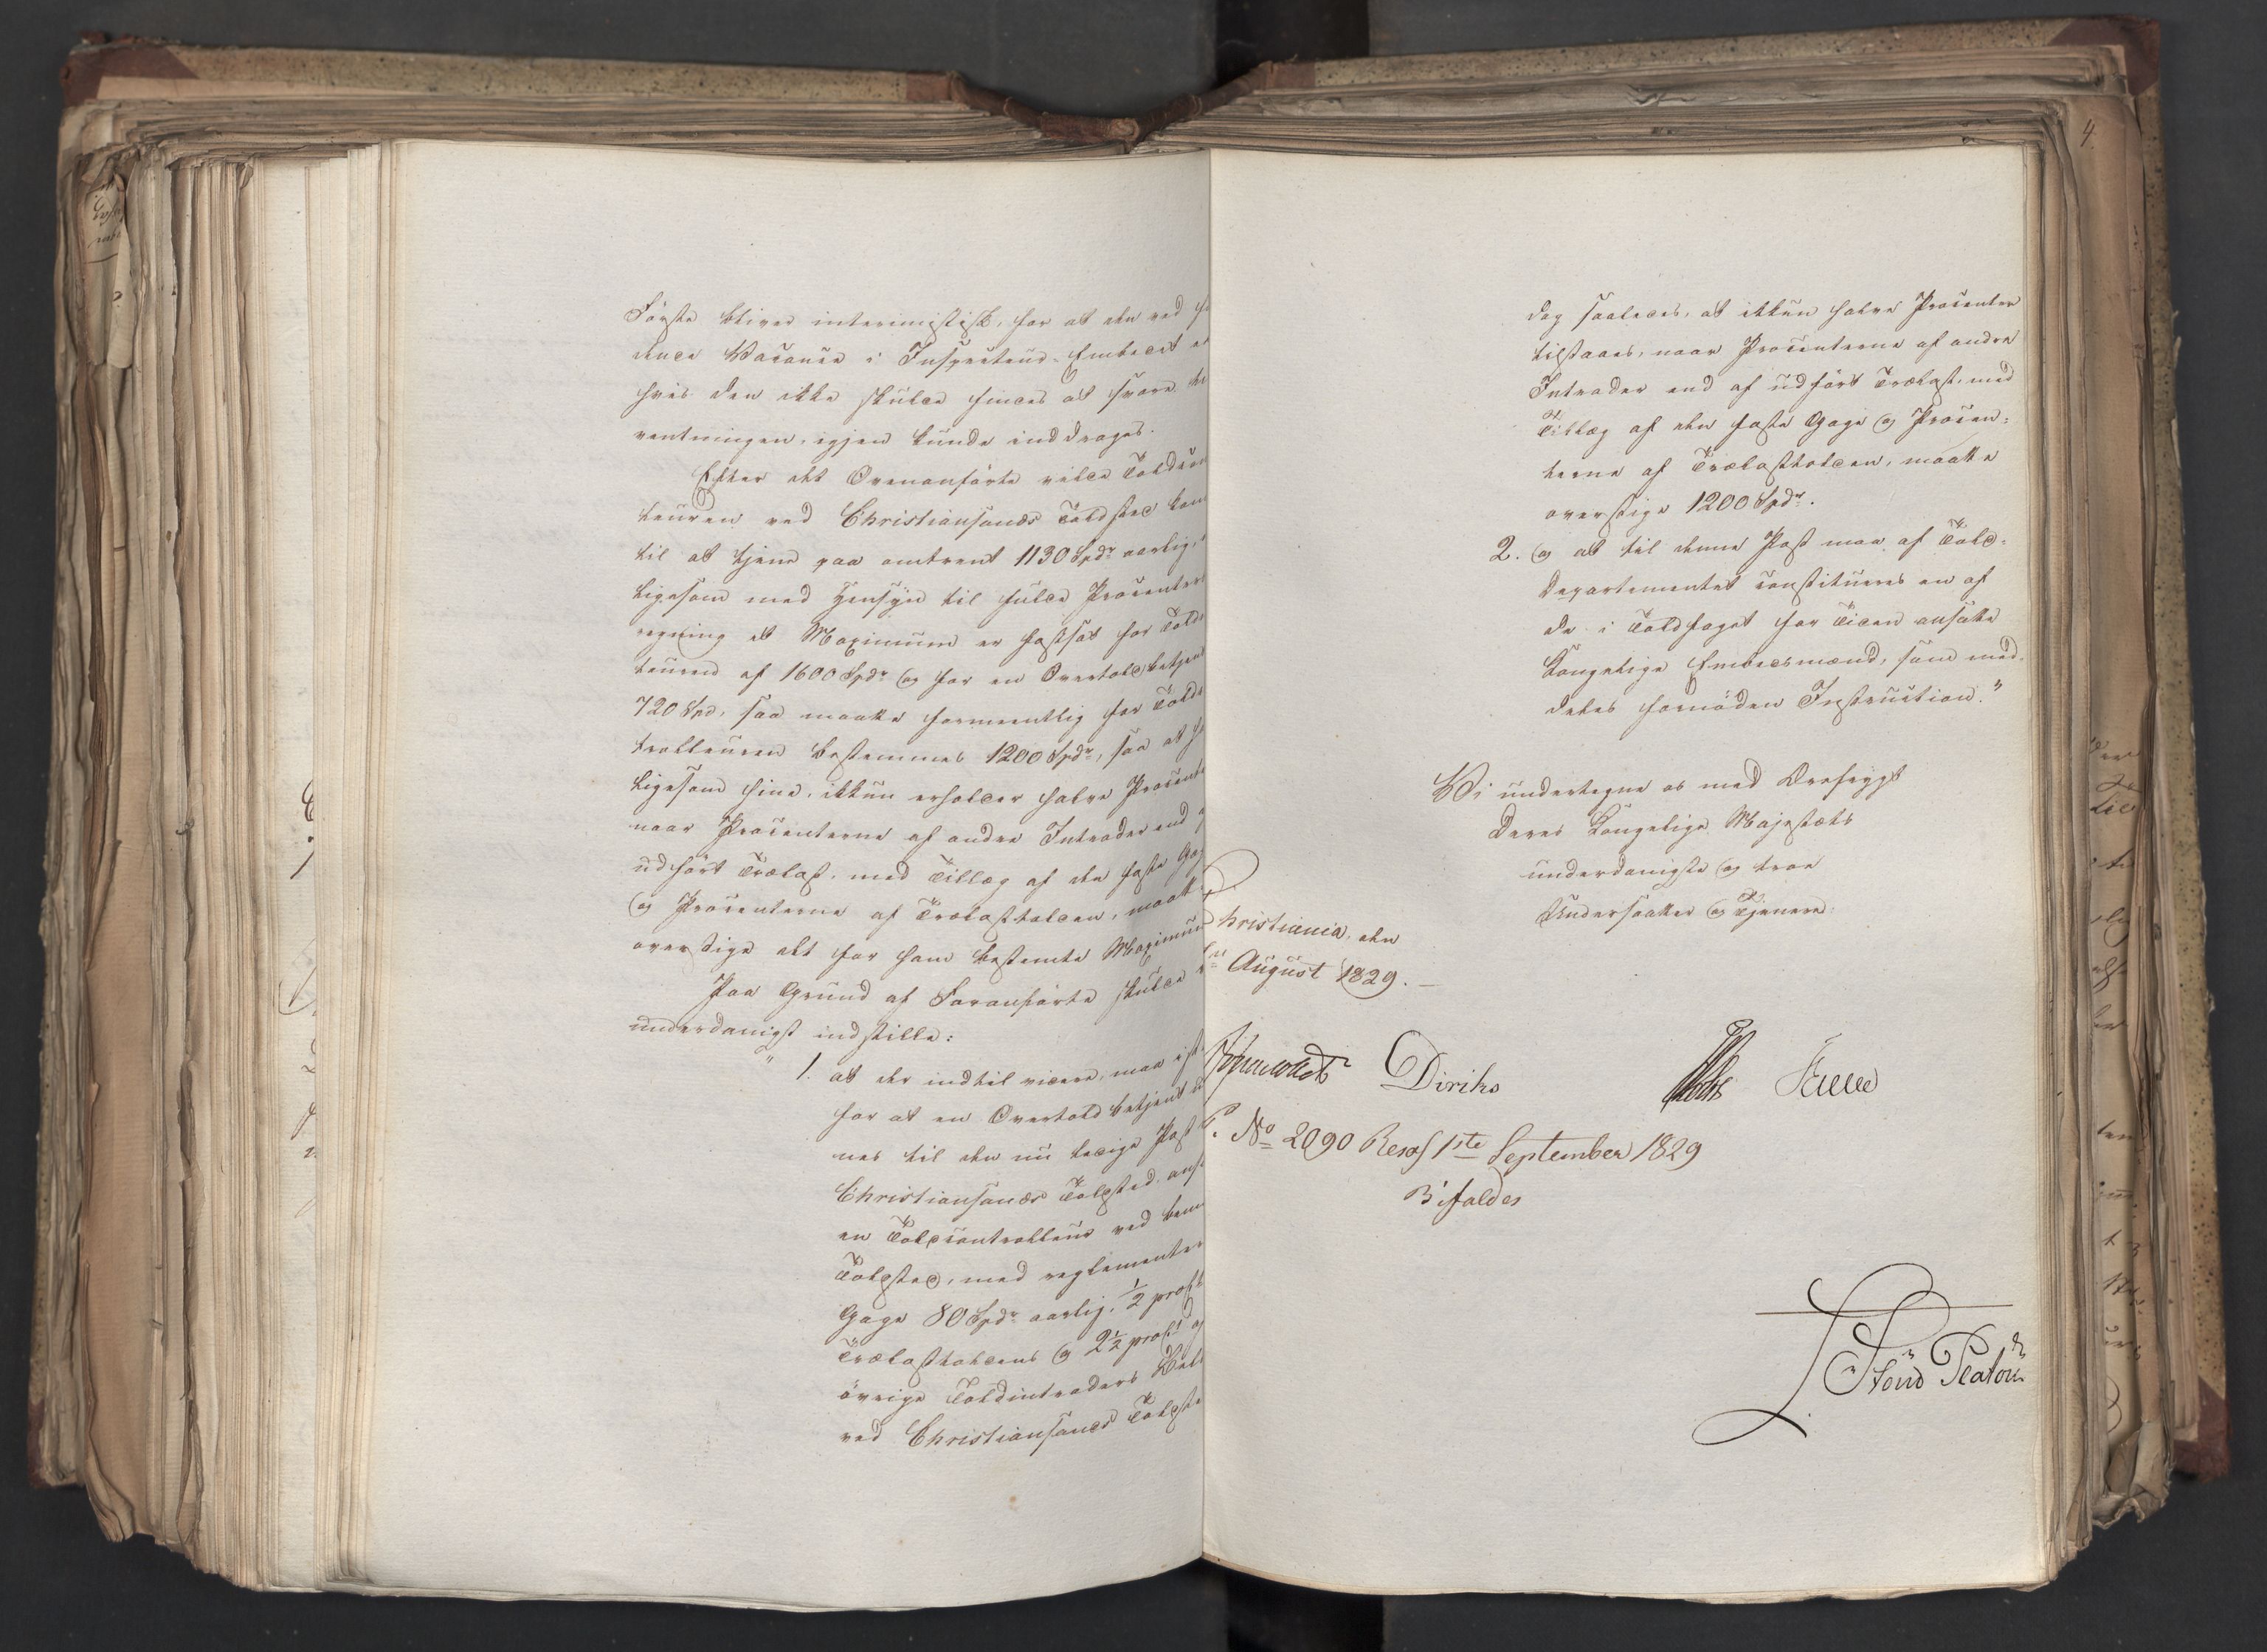 Første bliver interimistisk, for at den ved
dence Vacance i Inspecteur-Embedet
hvis den ikke skulde findes at svare
ventningen, igjen kunde inddrages.
Efter det Ovenanførte vilde Toldcon
leuren ved Christiansands Toldsted kom
til at tjene paa omtrent 1130 Spdr aarlig,
ligesom med Hensyn til fulde Procenters
regning et Maximum er fastsat for Told
leuren af 1600 Spdr og for en Overtoldbetjent
720 Spd, saa maatte formeentlig for Told
trolleuren bestemmes 1200 Spdr, saa at
ligesom hine, ikkun erholder halve Procente
naar Procenterne af andre Intrader end
udført Trælast, med Tillæg af den faste Gag
og Procenterne af Trælasttolden, maatt
overstige det for ham bestemte Maximum
Paa Grund af Foranførte skulde
underdanigst indstille:
" 1. at der indtil videre, maa
for at en Overtoldbetjent
nes til den nu ledige Post
Christiansands Toldsted, ans
en Toldcontrolleur ved
Toldsted, med reglementer
Gage 80 Spdr aarlig, 1/2 proCt
Trælasttoldens og 2 1/2 proCt af
øvrige Toldintraders
ved Christiansands Toldste
dog saaledes, at ikkun halve Procenter
tilstaaes, naar Procenterne af andre
Intrader end af udført Trælast, med
Tillæg af den faste Gage og Procen-
terne af Trælasttolden, maatte
overstige 1200 Spdr.
2. og at til denne Post maa af Told-
Departementet constitueres en af
de i Toldfaget for Tiden ansatte
Kongelige Embedsmænd, som med-
deles fornøden Instruction."
Vi undertegne os med Ærefrygt
Deres Kongelige Majestæts
underdanigste og troe
Undersaatter og Tjenere:
Christiania, den
August 1829.
Diriks
No 2090 Resol 1ste September 1829
Bifaldes